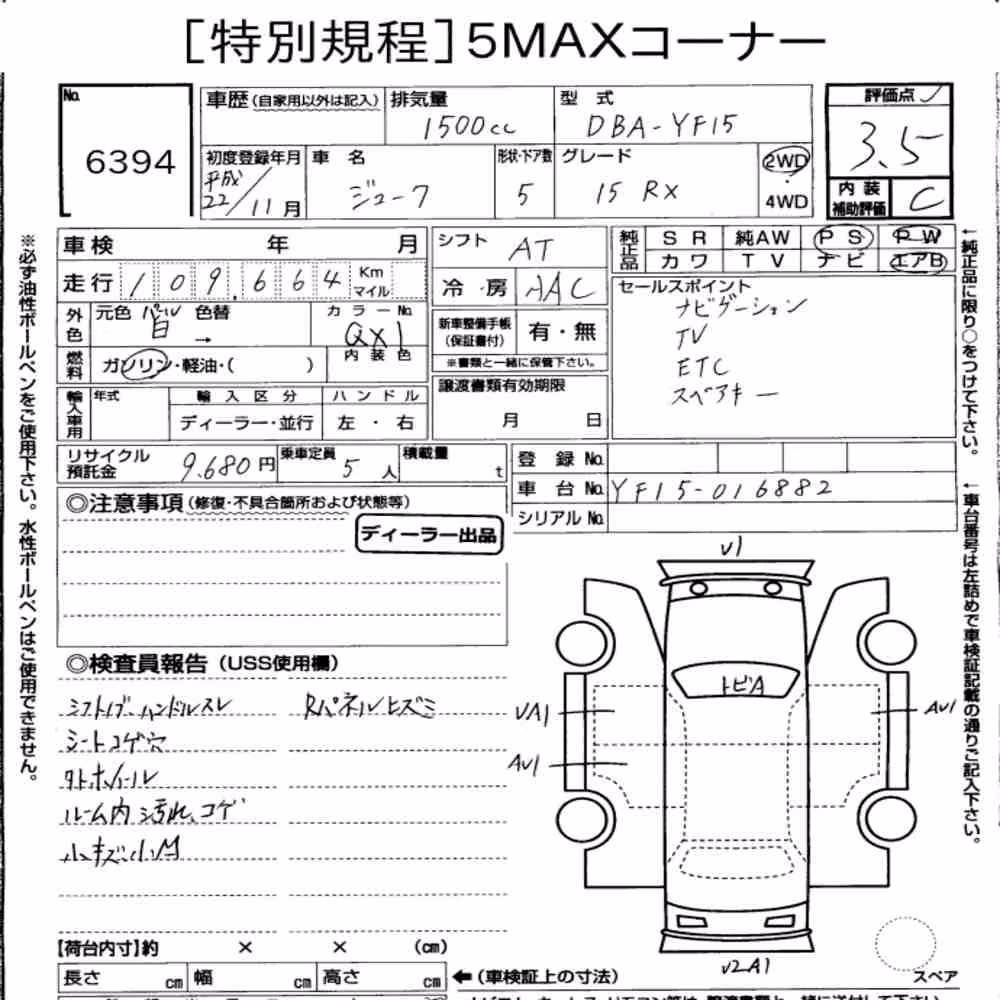 [特別規程]5MAXコーナー
No.
6394
車歴(自家用以外は記入)
排気量
1500cc
型 式
DBA-YF15
評価点
3.5
初度登録年月
平成
22/11月
車 名
ジューク
形状・ドア数
5
グレード
15 RX
2WD
・
4WD
内 装
補助評価
C
車検 年 月
走行 109,664 Km
マイル
外色
元色 パール 色替
カラーNo.
QX1
→
内 装 色
燃料
ガソリン・軽油・( )
輸入車用
年式
輸 入 区 分
ハ ン ド ル
ディーラー・並行
左 ・ 右
シフト
AT
冷 ・ 房
AAC
新車整備手帳
(保証書付)
有・無
※書類と一緒に保管下さい。
譲渡書類有効期限
月 日
純正品
S R
純AW
P S
P W
カ ワ
T V
ナ ビ
エアB
セールスポイント
ナビゲーション
TV
ETC
スペアキー
リサイクル
預託金
9,680円
乗車定員
5人
積載量
t
登 録 No.
車 台 No. YF15-016882
シリアル No.
◎注意事項(修復・不具合箇所および状態等)
ディーラー出品
◎検査員報告(USS使用欄)
シフトノブ、ハンドルスレ
Rパネルヒズミ
シートコゲ穴
タトホイール
ルーム内汚れ、コゲ
小キズ、小M
V1
トビA
UA1
AU1
AU1
V2A1
スペア
【荷台内寸】約 × × (cm)
長さ cm
幅 cm
高さ cm
←(車検証上の寸法)
※必ず油性ボールペンをご使用下さい。水性ボールペンはご使用できません。
←純正品に限り○をつけて下さい。
←車台番号は左詰めで車検証記載の通りご記入下さい。